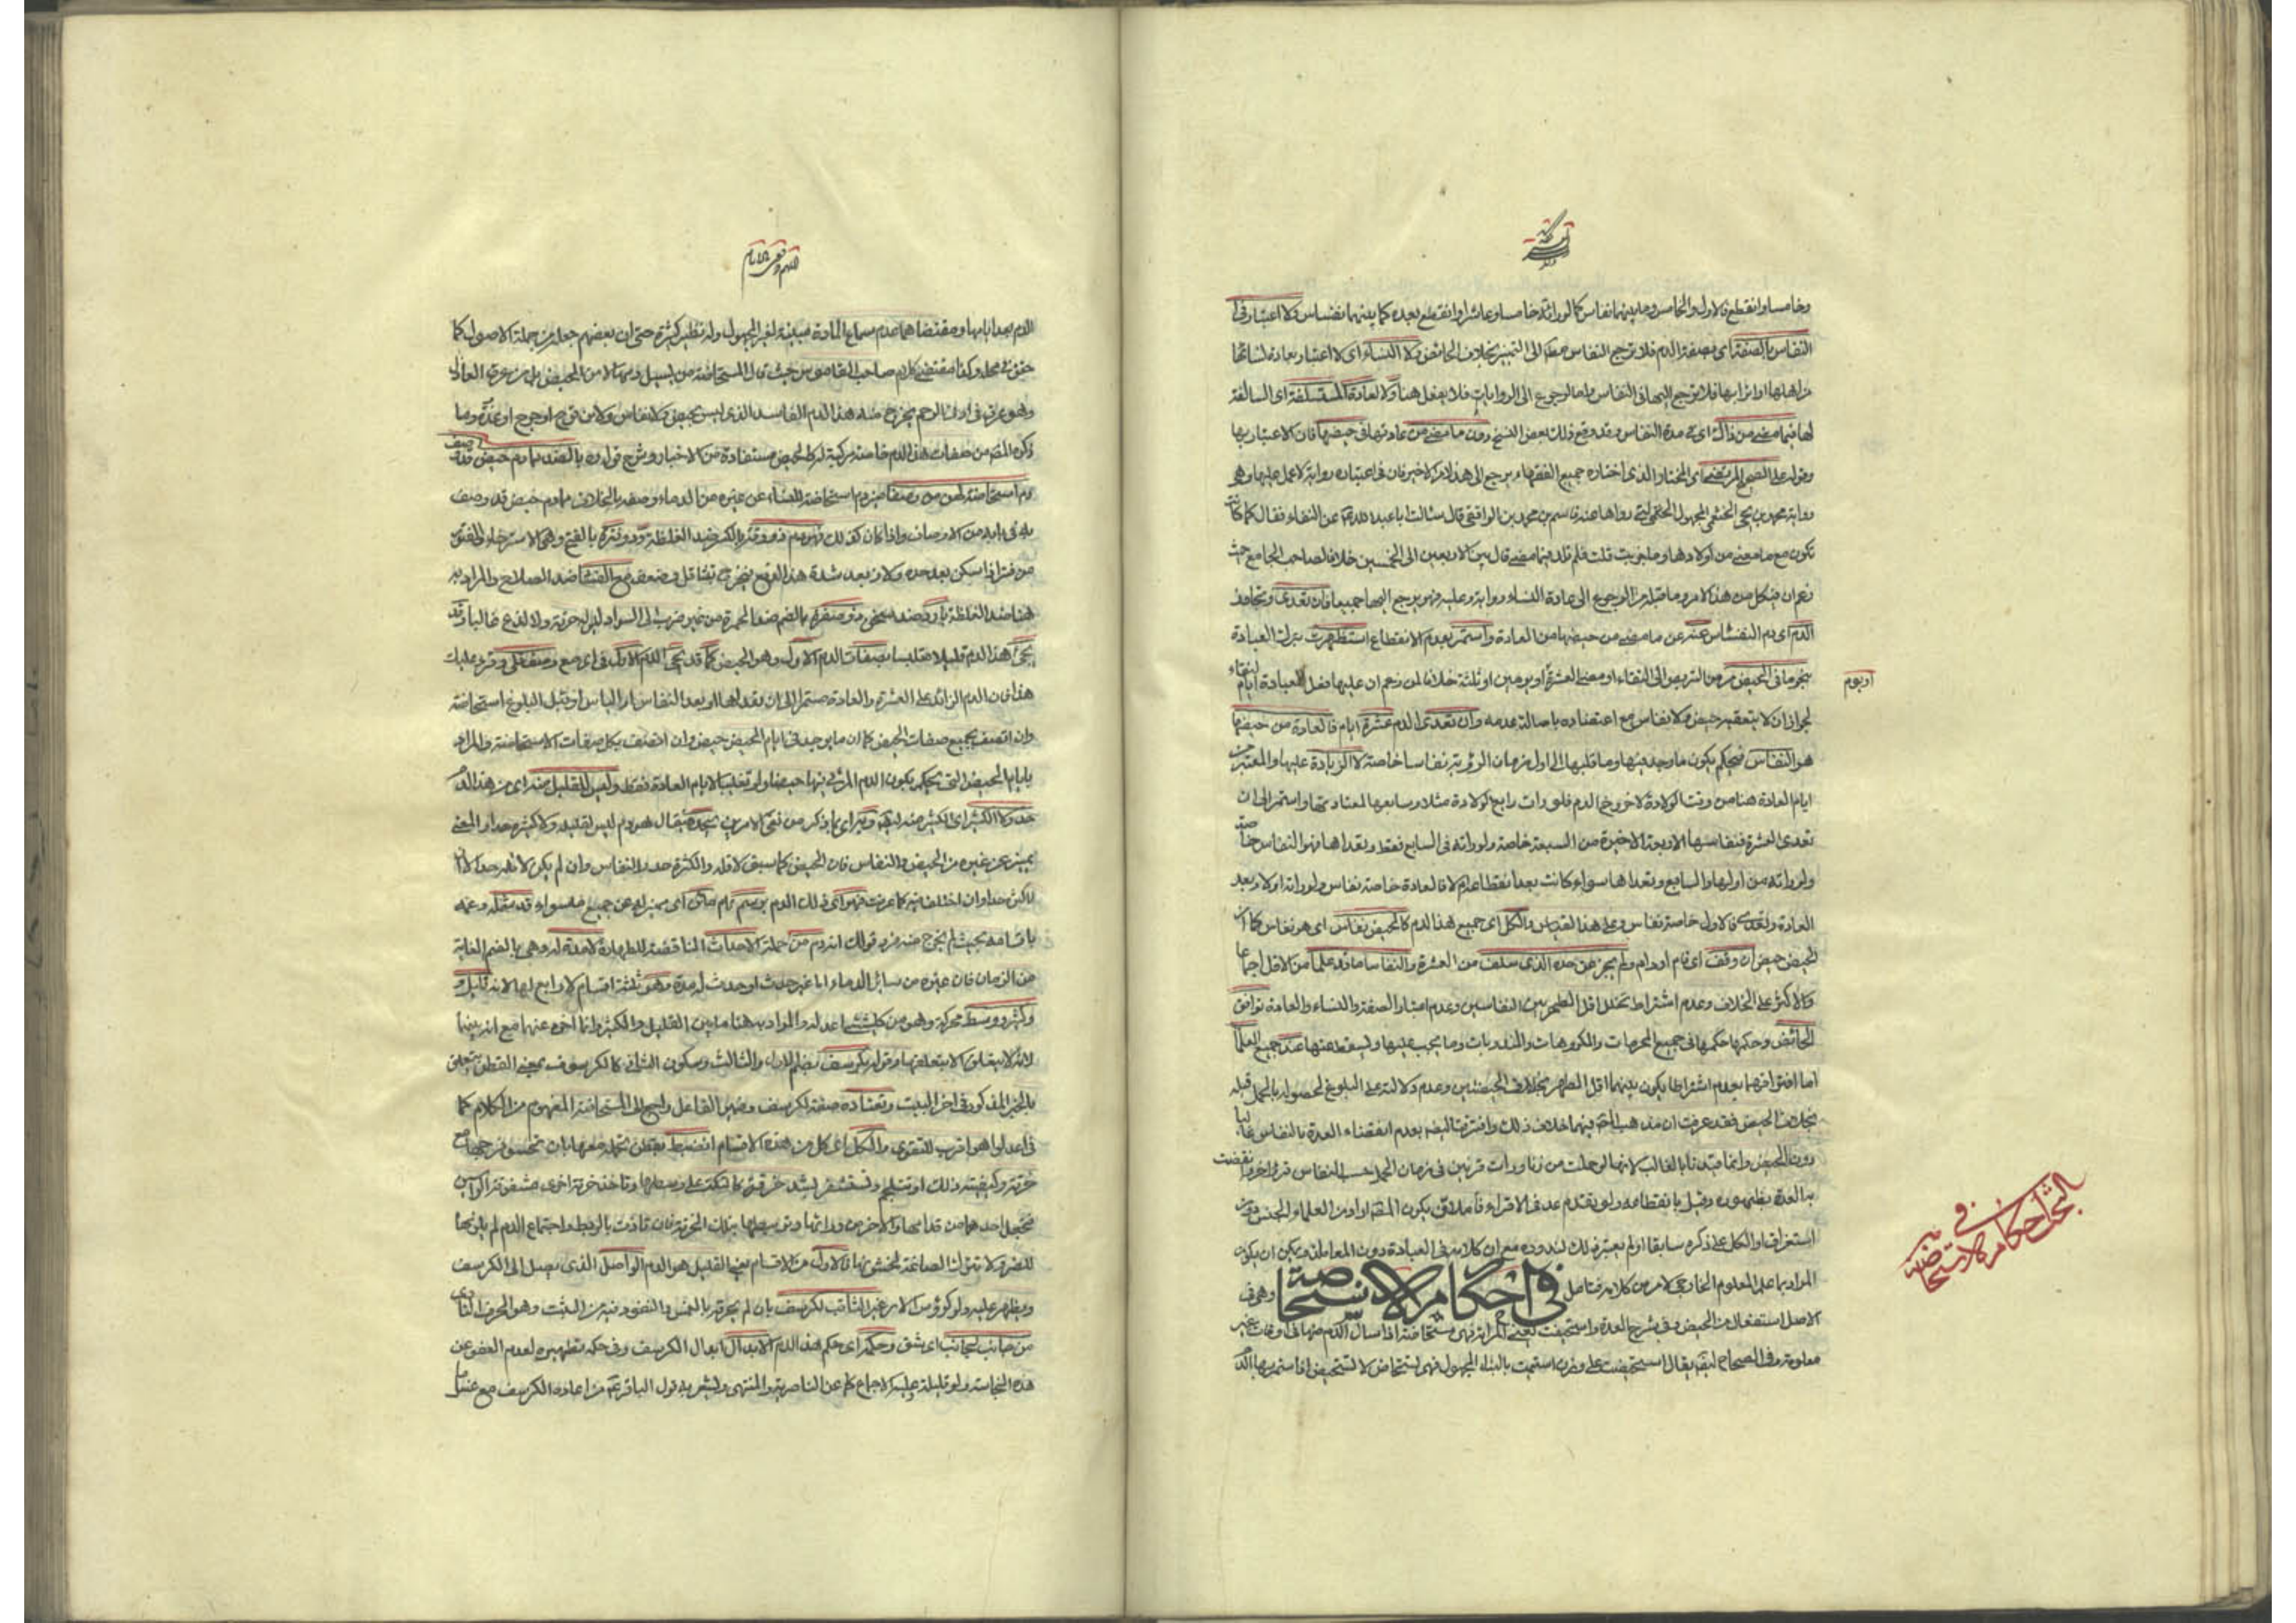 وخامسا وانقطع فالاول والخامس وما بينهما نفاس كما لو راته خامسا وعاشرا وانقطع بعده كما بينهما نفاس ولا اعتبار في
النفاس بالصفة اى بصفة الدم فلا ترجع النفاس مطلقا الى التميز بخلاف الحائض ولا النساء اى لا اعتبار بعادة نسائها
من اهلها او اترابها فلا ترجع اليها فى النفاس واما الرجوع الى الروايات فلا يفعل هنا ولا لعادة المستسلفة اى السالفة
لها فيما مضى من ذاك اى فى مدة النفاس وقد وقع ذلك بعض النسخ دون ما مضى من عادتها فى حيضها فان الاعتبار بها
وقوله على الصحيح المرتضى اى المختار الذى اختاره جميع الفقهاء يرجع الى هذا الامر الاخير فان فى اعتباره رواية لا عمل عليها وهو
رواية محمد بن يحيى الخثعمى المجهول قال سئالت ابا عبد الله عن النفساء فقال كما كانت
تكون مع ما مضى من اولادها وما جربت قلت فلم تلد فيما مضى قال بين الاربعين الى الخمسين خلافا لصاحب الجامع حيث
زعم ان فى كل من هذا الامر وما قبله من الرجوع الى عادة النساء رواية وعليه فهو يرجع اليها جميعا فان تعدى وتجاوز
الدم اى دم النفساء عنه عن ما مضى من حيضها من العادة واستمر بعدم الانقطاع استظهرت بترك العبادة
بنحو ما فى الحيض مر من التربص الى النقاء او مضى العشرة او يومين او ثلثة خلافا لمن زعم ان عليها فعل العبادة ايام
او يوم
لجواز ان لا يتعقبه حيض ولا نفاس مع اعتضاده باصالة عدمه وان تعدى الدم عشرة ايام فالعادة من حيضها
هو النفاس فيحكم بكون ما وجد فيها وما قبلها الى اول زمان الرؤية نفاسا خاصة لا الزيادة عليها والمعتبر من
ايام العادة هنا من وقت الولادة لا خروج الدم فلو رات رابع الولادة مثلا وسابعها لمعتادتها واستمر الى ان
تعدى العشرة فنفاسها الاربعة الاخيرة من السبعة خاصة ولو راته فى السابع فقط وتعداها فهو النفاس خاصة
ولو راته من اولها والسابع وتعداها سواء كانت بعد انقطاعه ام لا فالعادة خاصة نفاس ولو راته اولا وبعد
العادة وتعدى فالاول خاصة نفاس وعلى هذا القياس والكل اى جميع هذا الدم كالحيض نفاس اى هو نفاس كما ان
الحيض حيض ان وقف اى قام او دام ولم يجز عن حده الذى سلف من العشرة والنفاسا ما قد علما من الاقل اجماعا
والاكثر على الخلاف وعدم اشتراط تخلل اقل الطهر بين النفاسين وعدم اعتبار الصفة والنساء والعامة توافق
الحائض وحكمها حكمها فى جميع المحرمات والمكروهات والمندوبات وما يجب عليها ويسقط عنها عند جميع العلما
اما افتراقهما بعدم اشتراط ما يكون بينهما اقل الطهر بخلاف الحيضتين وعدم دلالته على البلوغ لحصوله بالحمل قبله
بخلاف الحيض فقد عرفت ان مذهب المص فيهما خلاف ذلك وافترقا ايضا بعدم انقضاء العدة بالنفاس غالبا
دون الحيض وانما قيدنا بالغالب لانها لو حملت من زنا ورات قرئين فى زمان الحمل حسب النفاس قرءا اخر وانقضت
به العدة بظهوره وقيل بانقطاعه
استغراقا والكل على ذكره سابقا او لم يعتبر ذلك لندوره مع ان كلامه فى العبادة دون المعاملة ويمكن ان يكون
المراد بما علما المعلوم الخارجى لا من كلامه فتامل فى احكام الاستحاضة وهى فى
البحث فى احكام الاستحاضة
الاصل استفعال من الحيض وفى شرح العدة واستحيضت بمعنى المراة فهى مستحاضة اذا سال الدم منها فى اوقات غير
معلومة وفى الصحاح ايضا يقال استحيضت على وزن استميت بالبناء المجهول فهى تستحاض لا تستحيض اذا استمر بها الدم
الدم بعد ايامها ومقتضاهما عدم سماع المادة مبنية لغير المجهول وله نظير كثيرة حتى ان بعضهم جعله من جملة الاصول كما
حقق فى محله وكذا مقتضى كلام صاحب القاموس حيث قال المستحاضة من يسيل دمها لا من الحيض بل من عرق العاذل
وهو عرق فى ادنى الرحم يخرج منه هذا الدم الفاسد الذى ليس بحيض ولا نفاس ولا من قرح او جرح او عذرة وما
ذكره المص من صفات هذا الدم خاصة مركبة له كالحيض مستفادة من الاخبار وشرح قوله ده بالضد مما دم حيض قد وصف
دم استحاضة لهن من وصفا ميز دم استحاضة للنساء عن غيره من الدماء وصفه بالخلاف مما دم حيض قد وصف
به فى بابه من الاوصاف واذا كان كذلك فهو دم ذو رقة بالكسر ضد الغلظة وذو فترة بالفتح وهى الاسترخاء والفتور
من فتر اذا سكن بعد حده ولان بعد شدة هذا الدم يخرج بتثاقل وضعف مع الفساد ضد الصلاح والمراد به
هنا ضد الغلظة بارد ضد سخين وذو صفرة بالضم ضد الحمرة من غير ضرب الى السواد ليس له حرقة ولا لذع غالبا وقد
يجئ هذا الدم قليلا متلبسا بصفات الدم الاول وهو الحيض كما قد يجئ الدم الاول فى اى مع وصف تلى وقرء عليك
هذا فان الدم الزائد على العشرة والعادة مستمرا الى ان تقداها او بعد النفاس او الياس او قبل البلوغ استحاضة
وان اتصف بجميع صفات الحيض كما ان ما يوجد فى ايام الحيض حيض وان اتصف بكل صفات الاستحاضة والمراد
بايام الحيض التى يحكم بكون الدم المرئى فيها حيضا ولو تغليبا لايام العادة فقط وليس للقليل منه اى من هذا الدم
حد ولا الكثير اى الكثير منه ايضا وميز اى بما ذكر من نفى الامرين بحده يقال هو دم ليس لقليله ولا كثيره حد او المعنى
يميز عن غيره من الحيض والنفاس فان الحيض كما سبق لاقله والكثرة حد والنفاس وان لم يكن لاقله حد الا ان
لاكثره حدا وان اختلف فيه كما عرفت فهو اى ذلك الدم برسم تام مائز اى مميز له عن جميع ما سواه قد مثله وعمه
باقسامه بحيث لم يخرج منه فرد قولك انه دم من جملة الاحداث الناقضة للطهارة لا مدة له وهى بالضم الغاية
من الزمان فان غيره من سائر الدماء اما غير حدث او حدث له مدة وهو ثلثة اقسام لا رابع لها لانه قليل و
وكثير ووسط محركة وهو من كل شئ اعدله والمراد به هنا ما بين القليل والكثير وانما اخره عنهما مع انه بينهما
لانه لا يتعلق الا بتعلقهما وقوله بكرسف بضم الاول والثالث وسكون الثانى كالكرسوف بمعنى القطن متعلق
بالخبر المذكور فى اخر البيت وتعتاده صفة لكرسف وضمير الفاعل راجع الى المستحاضة المفهوم من الكلام كما
فى اعدلوا هو اقرب للتقوى والكل اى كل من هذه الاقسام انضبط بقطن تحمله معها بان تحشو فرجها مع
خرقة وكيفية ذلك او تستلجم وتستثفر بشد خرقة كالتكة على وسطها وتاخذ خرقة اخرى مشقوقة الراسين
فتجعل احدهما من قدامها والاخر من ورائها وتوسطها بتلك الخرقة فان تاذت بالربط واجتماع الدم لم يلزمها
للضرر ولا تترك الصائمة الحشو نهارا فالاول من الاقسام يعنى القليل هو الدم الواصل الذى يصل الى الكرسف
ويظهر عليه ولو كرؤس الابر غير الثاقب لكرسف بان لم يخرقه بالغمس والنفوذ فيه من الثقب وهو الخرق النافذ
من جانب لجانب اى شق وحكمه اى حكم هذا الدم الابدال ابدال الكرسف وفى حكمه تطهيره لعدم العفو عن
هذه النجاسة ولو قليلة وعليه الاجماع كما عن الناصرية والمنتهى ويشعر به قول الباقر من اعادة الكرسف مع غسل